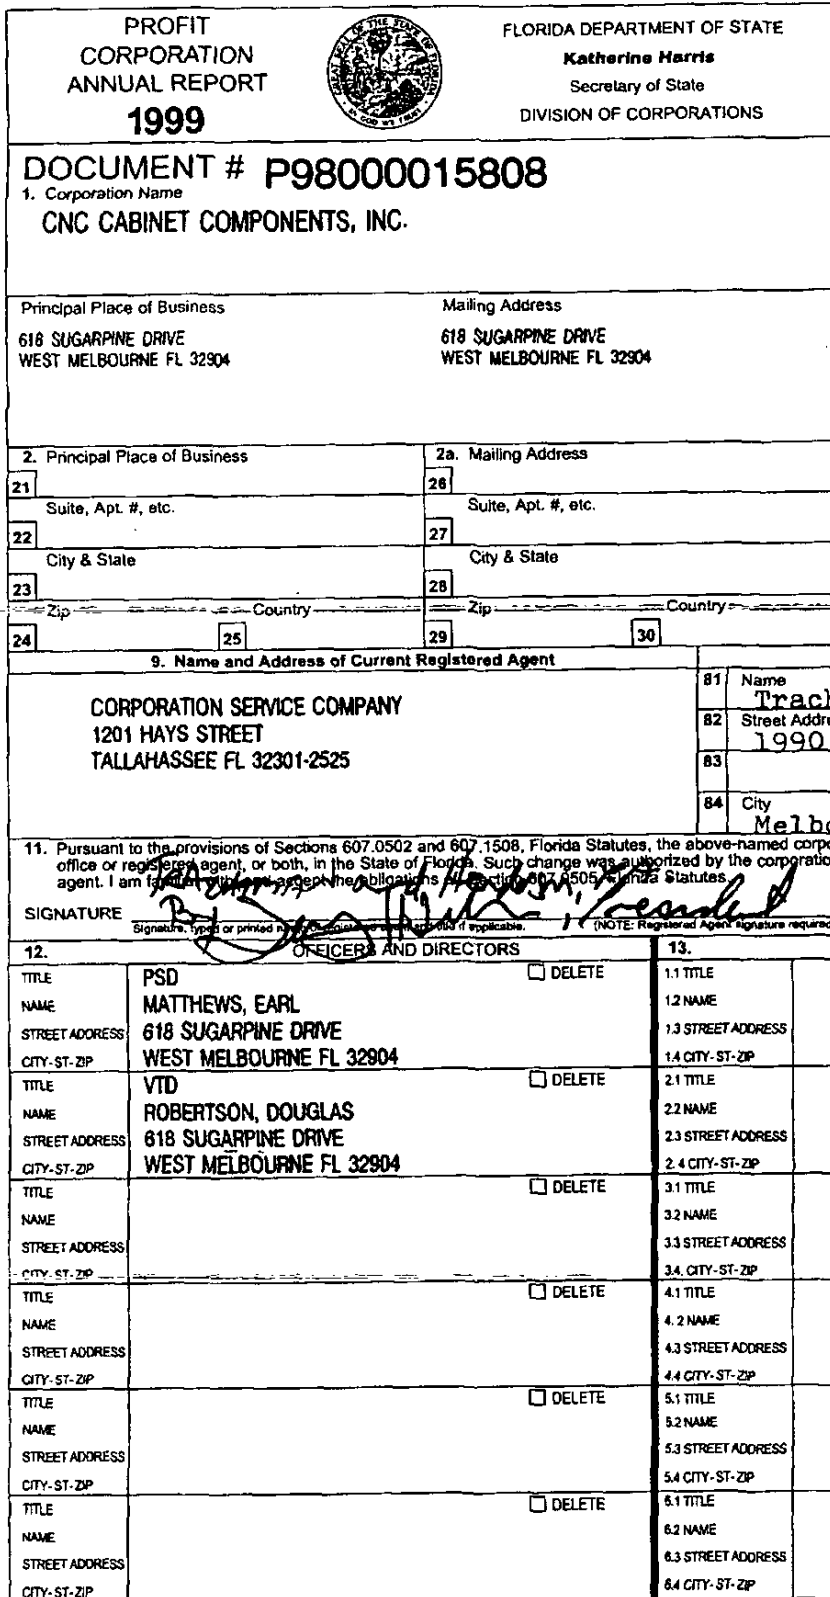 PROFIT
CORPORATION
ANNUAL REPORT
1999
FLORIDA DEPARTMENT OF STATE
Katherine Harris
Secretary of State
DIVISION OF CORPORATIONS
DOCUMENT # P98000015808
1. Corporation Name
CNC CABINET COMPONENTS, INC.
Principal Place of Business
Mailing Address
618 SUGARPINE DRIVE
WEST MELBOURNE FL 32904
618 SUGARPINE DRIVE
WEST MELBOURNE FL 32904
2. Principal Place of Business
2a. Mailing Address
21
26
Suite, Apt. #, etc.
Suite, Apt. #, etc.
22
27
City & State
City & State
23
28
Zip Country
Zip Country
24 25
29 30
9. Name and Address of Current Registered Agent
CORPORATION SERVICE COMPANY
1201 HAYS STREET
TALLAHASSEE FL 32301-2525
81 Name
Trach
82 Street Addre
1990
83
84 City
Melbo
11. Pursuant to the provisions of Sections 607.0502 and 607.1508, Florida Statutes, the above-named corpo
office or registered agent, or both, in the State of Florida. Such change was authorized by the corporatio
agent. I am familiar with, and accept the obligations of, Section 607.0505, Florida Statutes.
SIGNATURE
By President
Signature, typed or printed name of registered agent and title if applicable.
(NOTE: Registered Agent signature required
12. OFFICERS AND DIRECTORS
13.
TITLE PSD DELETE
NAME MATTHEWS, EARL
STREET ADDRESS 618 SUGARPINE DRIVE
CITY-ST-ZIP WEST MELBOURNE FL 32904
1.1 TITLE
1.2 NAME
1.3 STREET ADDRESS
1.4 CITY-ST-ZIP
TITLE VTD DELETE
NAME ROBERTSON, DOUGLAS
STREET ADDRESS 618 SUGARPINE DRIVE
CITY-ST-ZIP WEST MELBOURNE FL 32904
2.1 TITLE
2.2 NAME
2.3 STREET ADDRESS
2.4 CITY-ST-ZIP
TITLE DELETE
NAME
STREET ADDRESS
CITY-ST-ZIP
3.1 TITLE
3.2 NAME
3.3 STREET ADDRESS
3.4. CITY-ST-ZIP
TITLE DELETE
NAME
STREET ADDRESS
CITY-ST-ZIP
4.1 TITLE
4.2 NAME
4.3 STREET ADDRESS
4.4 CITY-ST-ZIP
TITLE DELETE
NAME
STREET ADDRESS
CITY-ST-ZIP
5.1 TITLE
5.2 NAME
5.3 STREET ADDRESS
5.4 CITY-ST-ZIP
TITLE DELETE
NAME
STREET ADDRESS
CITY-ST-ZIP
6.1 TITLE
6.2 NAME
6.3 STREET ADDRESS
6.4 CITY-ST-ZIP